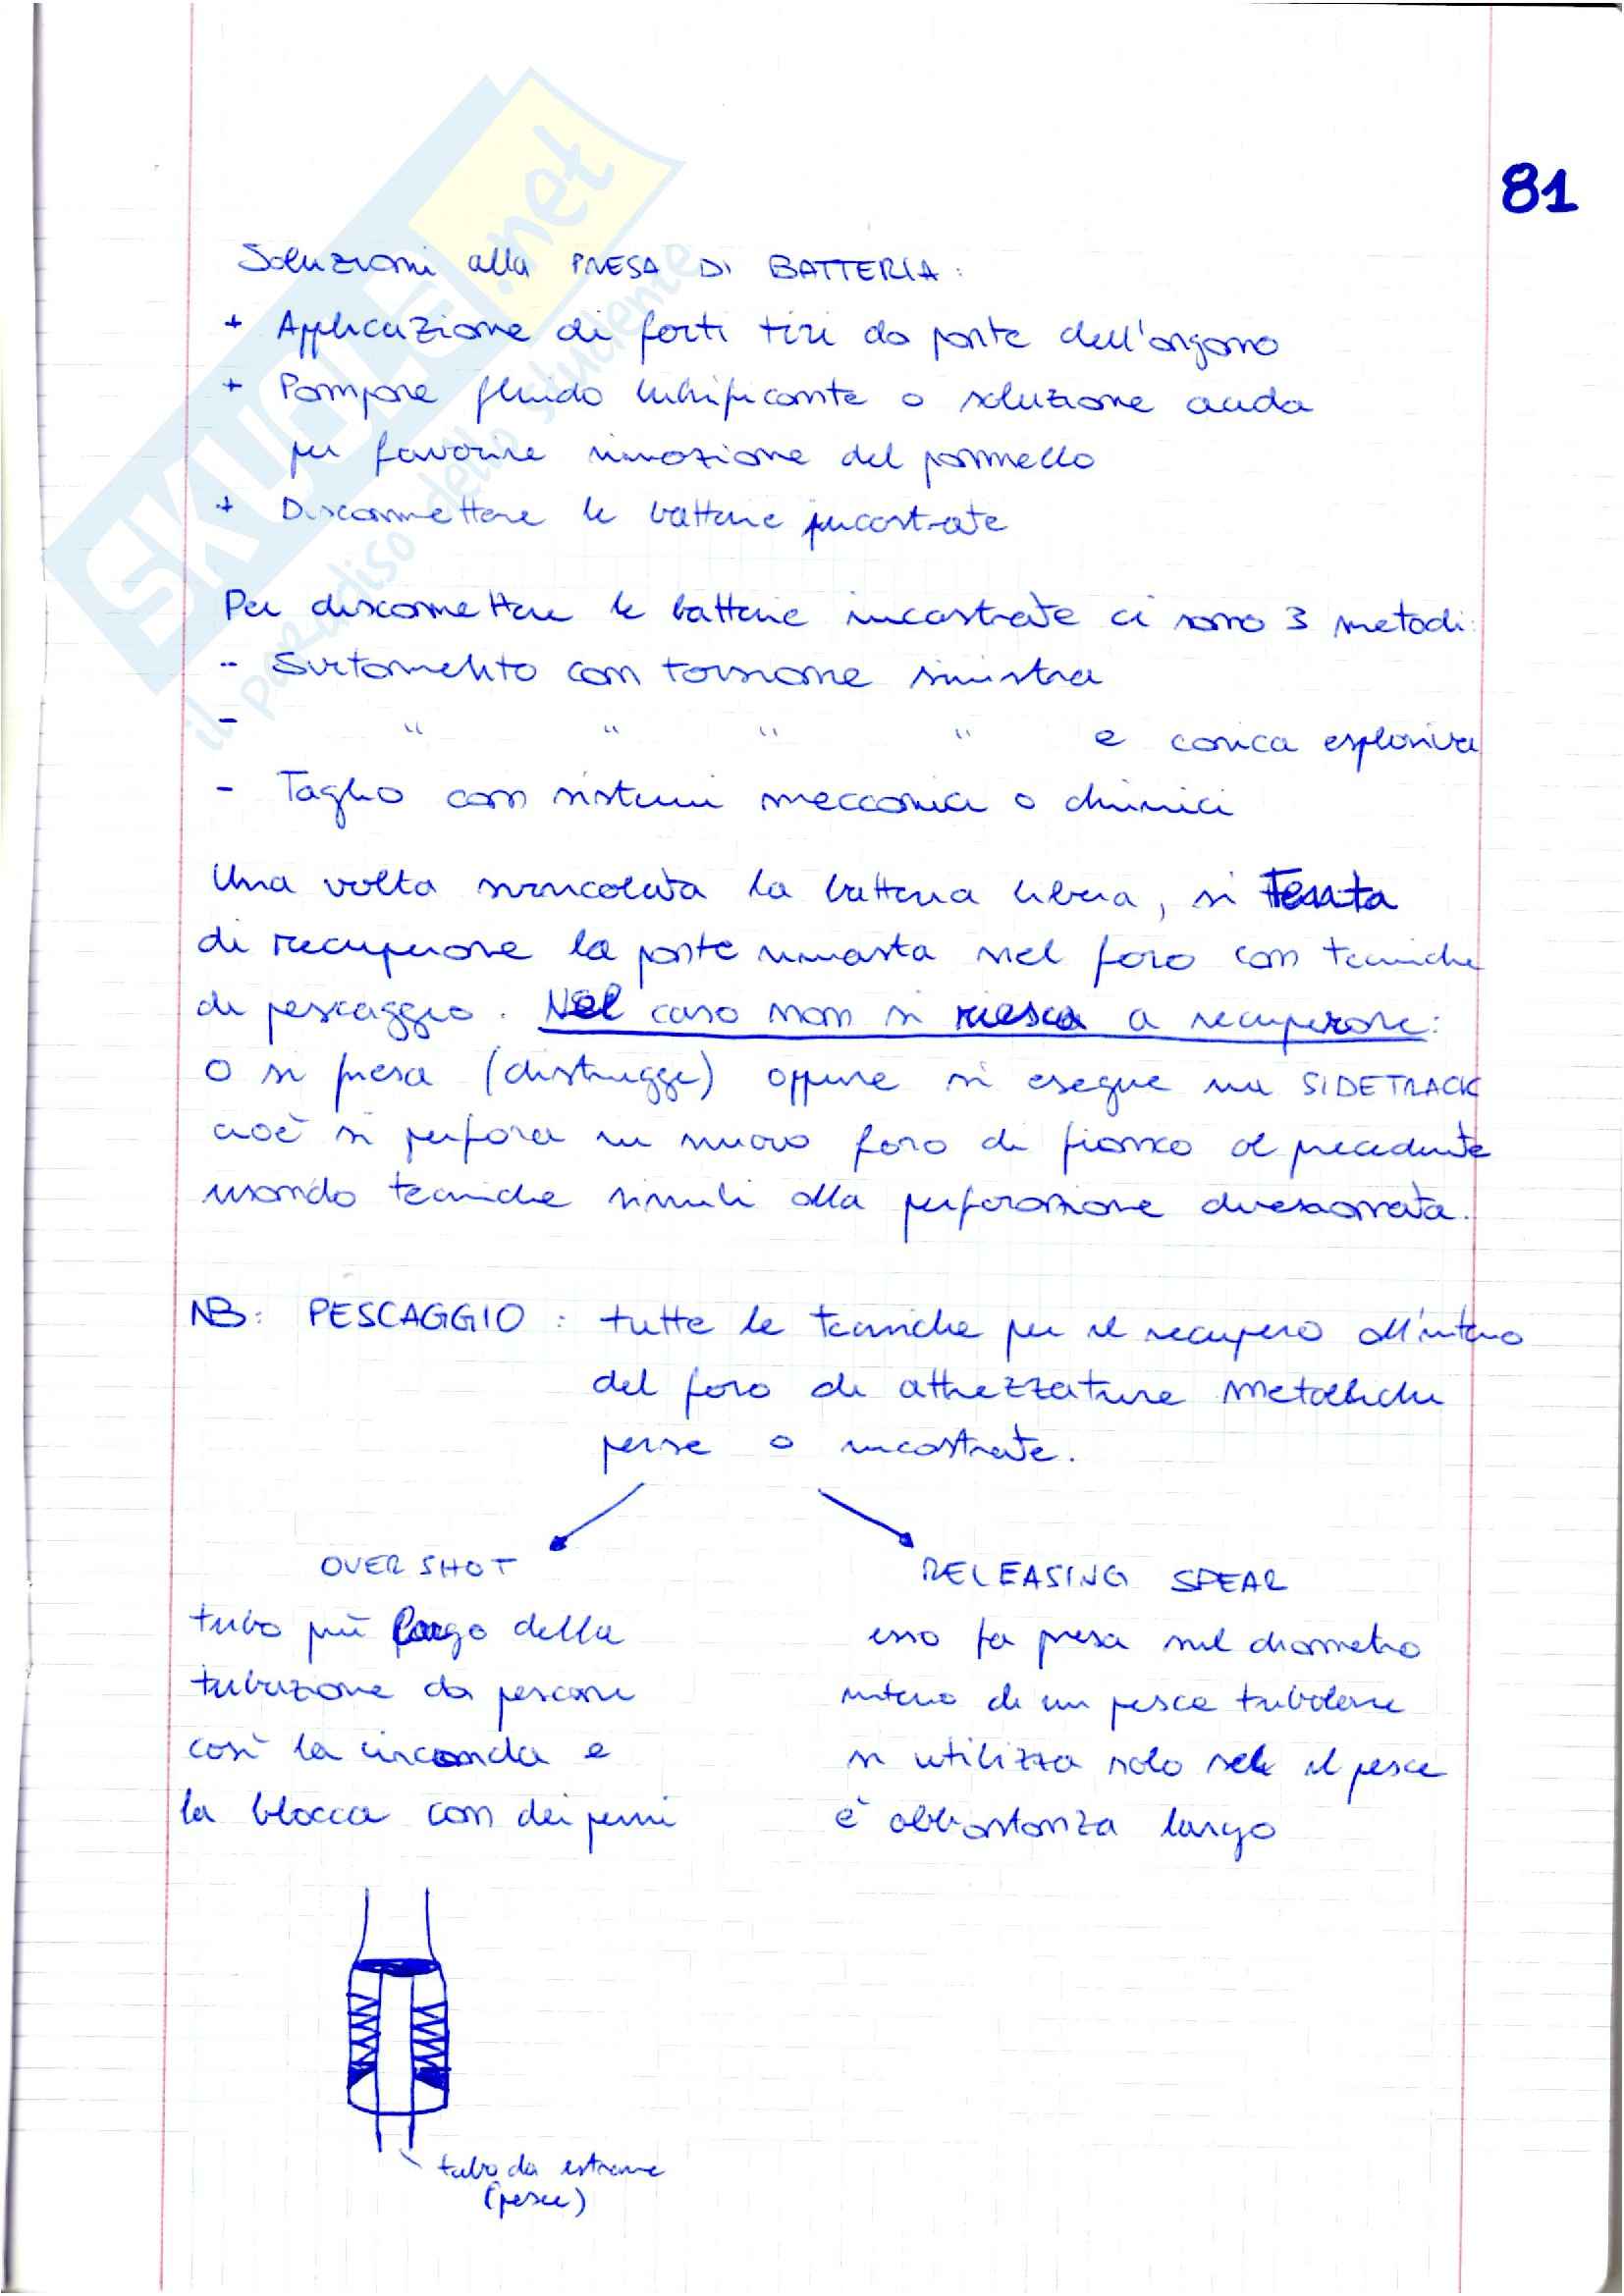 81
Soluzioni alla PRESA DI BATTERIA:
+ Applicazione di forti tiri da parte dell'argano
+ Pompare fluido lubrificante o soluzione acida
per favorire rimozione del pannello
+ Disconnettere le batterie incastrate
Per disconnettere le batterie incastrate ci sono 3 metodi:
- Svitamento con torsione sinistra
- " " " " e carica esplosiva
- Taglio con sistemi meccanici o chimici
Una volta svincolata la batteria libera, si tenta
di recuperare la parte rimasta nel foro con tecniche
di pescaggio. Nel caso non si riesca a recuperare:
O si fresa (distrugge) oppure si esegue un SIDETRACK
cioè si perfora un nuovo foro di fianco al precedente
usando tecniche simili alla perforazione direzionata.
NB: PESCAGGIO: tutte le tecniche per il recupero all'interno
del foro di attrezzature metalliche
perse o incastrate.
OVERSHOT
tubo più largo della
tubazione da pescare
così la circonda e
la blocca con dei perni
RELEASING SPEAR
esso fa presa sul diametro
interno di un pesce tubolare
si utilizza solo se il pesce
è abbastanza largo
tubo da estrarre
(pesce)
SKUOLA.net
il paradiso dello studente